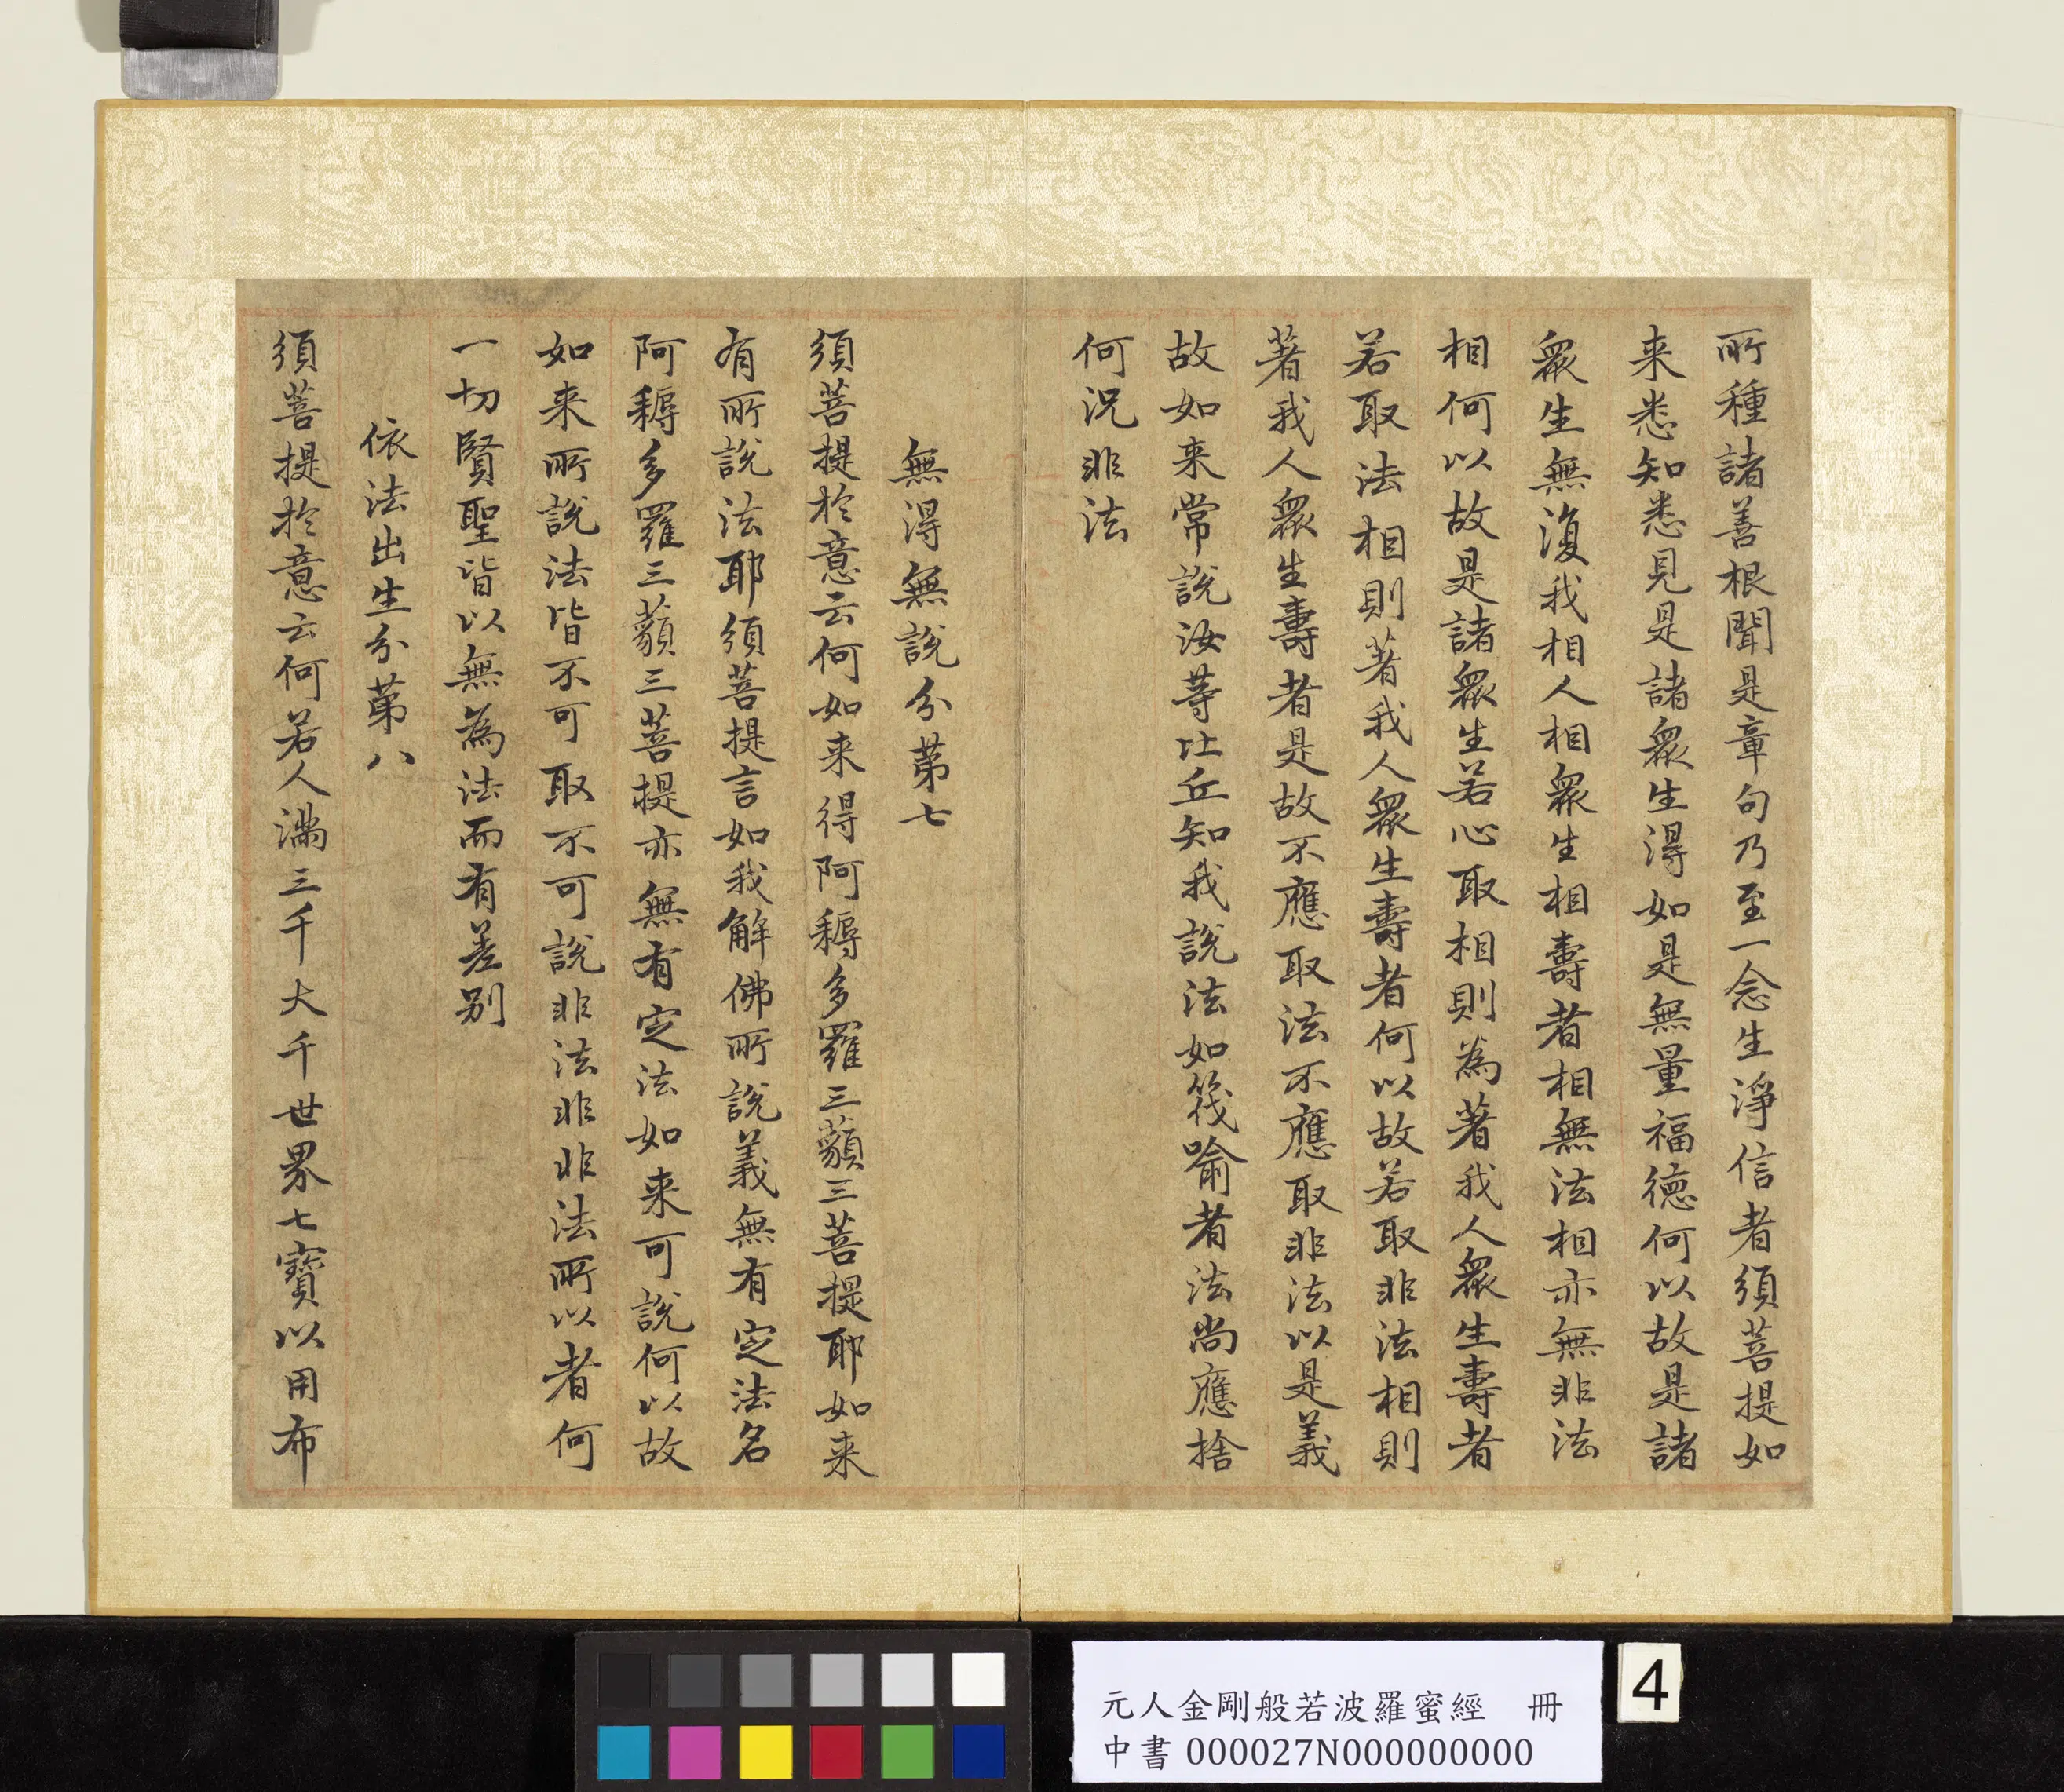 所種諸善根聞是章句乃至一念生淨信者須菩提如
来悉知悉見是諸衆生得如是無量福德何以故是諸
衆生無復我相人相衆生相壽者相無法相亦無非法
相何以故是諸衆生若心取相則為著我人衆生壽者
若取法相則著我人衆生壽者何以故若取非法相則
著我人衆生壽者是故不應取法不應取非法以是義
故如来常說汝等比丘知我說法如筏喻者法尚應捨
何況非法
無得無說分第七
須菩提於意云何如来得阿耨多羅三藐三菩提耶如来
有所說法耶須菩提言如我解佛所說義無有定法名
阿耨多羅三藐三菩提亦無有定法如来可說何以故
如来所說法皆不可取不可說非法非非法所以者何
一切賢聖皆以無為法而有差别
依法出生分第八
須菩提於意云何若人滿三千大千世界七寶以用布
元人金剛般若波羅蜜經 冊
中書000027N000000000
4